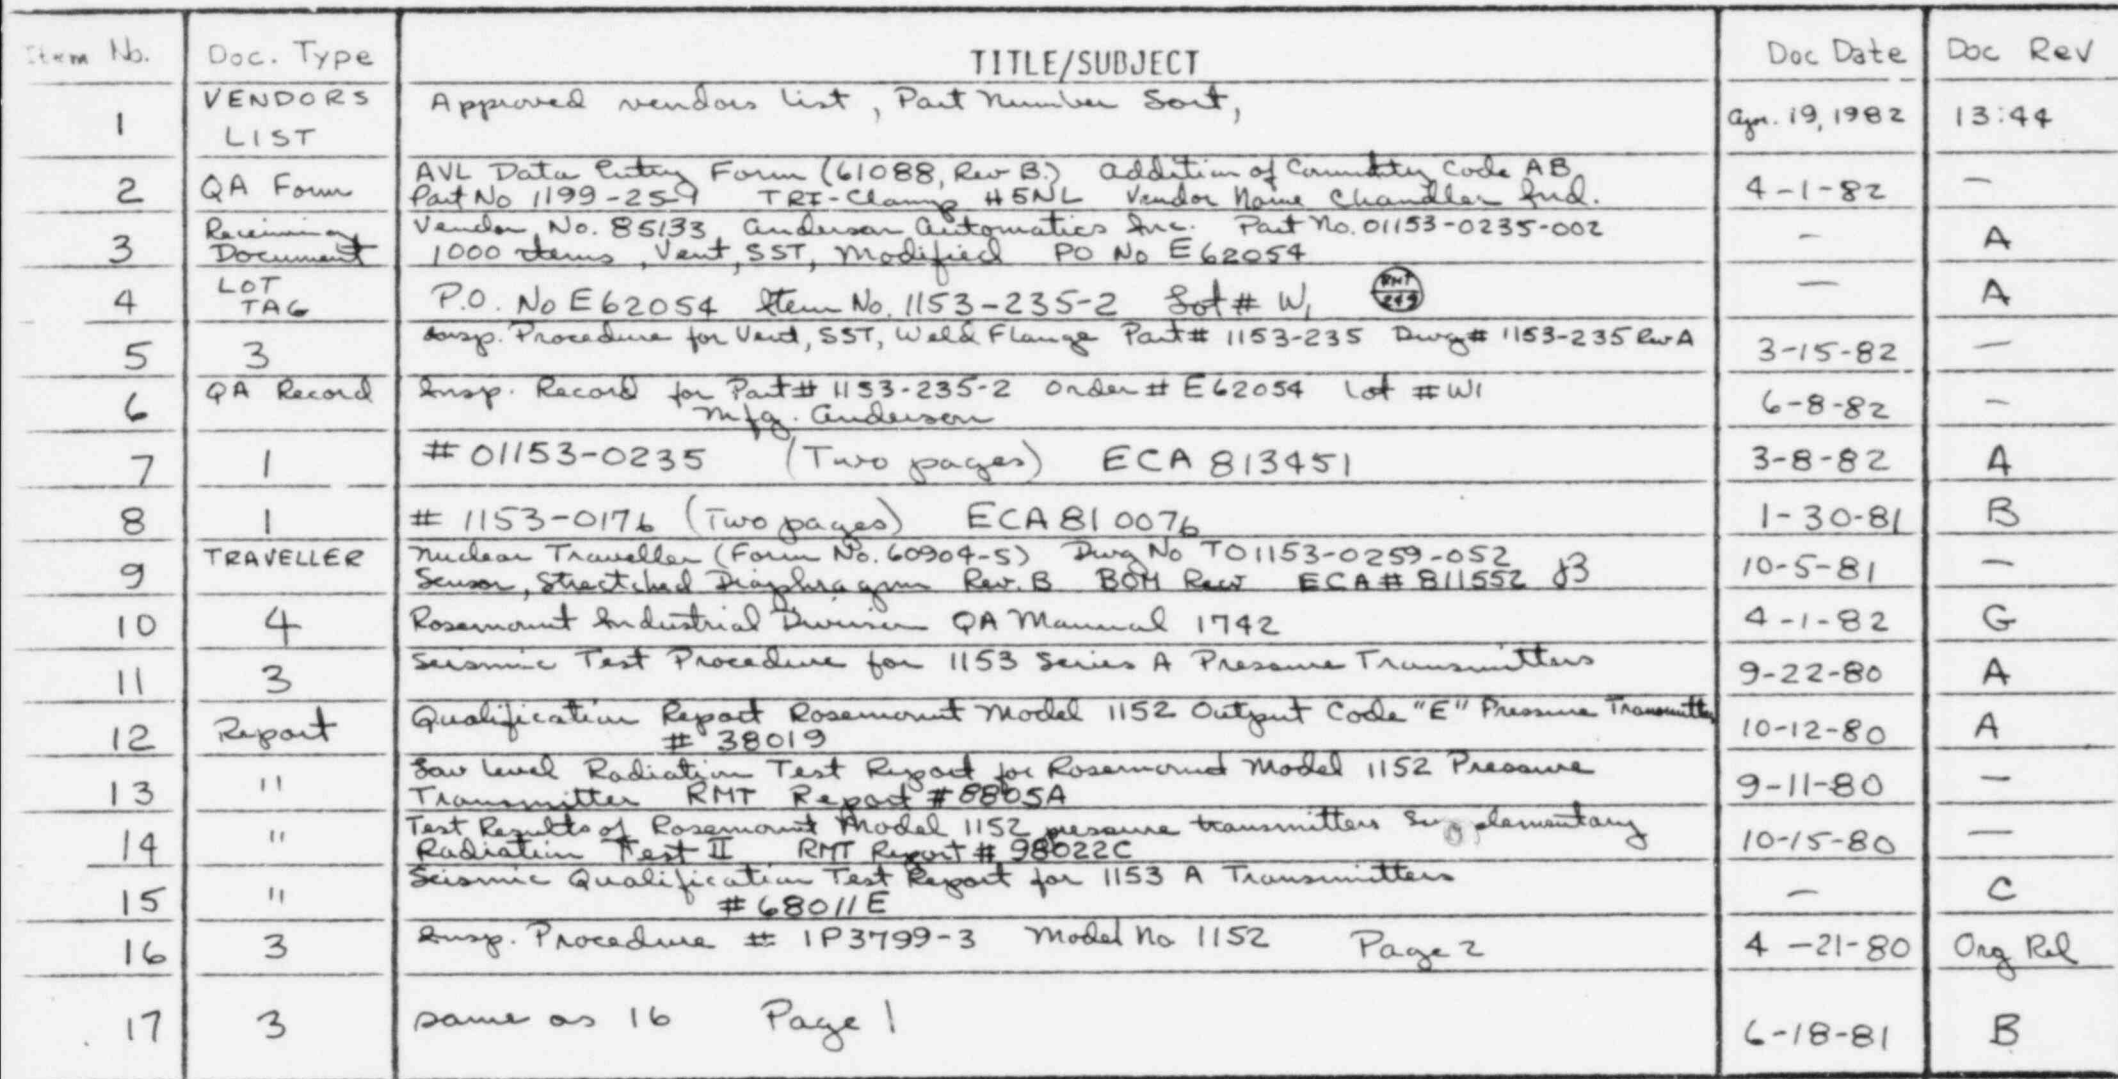 Item No. Doc. Type TITLE/SUBJECT Doc Date Doc Rev
1 VENDORS LIST Approved vendors list, Part Number Sort, Apr. 19, 1982 13:44
2 QA Form AVL Data Entry Form (61088, Rev B.) addition of Commodity Code AB 4-1-82 —
Part No 1199-25-9 TRI-Clamp H5NL Vendor Name Chandler Ind.
3 Receiving Document Vendor No. 85133 Anderson Automatics Inc. Part No. 01153-0235-002 – A
1000 items, Vent, SST, Modified PO No E62054
4 LOT TAG P.O. No E62054 Item No. 1153-235-2 Lot # W1 RMT — A
5 3 Insp. Procedure for Vent, SST, Weld Flange Part # 1153-235 Dwg # 1153-235 Rev A 3-15-82 —
6 QA Record Insp. Record for Part # 1153-235-2 Order # E62054 Lot # W1 6-8-82 –
Mfg. Anderson
7 1 # 01153-0235 (Two pages) ECA 813451 3-8-82 A
8 1 # 1153-0176 (Two pages) ECA 810076 1-30-81 B
9 TRAVELLER Nuclear Traveller (Form No. 60904-5) Dwg No TO1153-0259-052 10-5-81 —
Sensor, Stretched Diaphragm Rev. B BOM Rev ECA # 811552
10 4 Rosemount Industrial Division QA Manual 1742 4-1-82 G
11 3 Seismic Test Procedure for 1153 Series A Pressure Transmitters 9-22-80 A
12 Report Qualification Report Rosemount Model 1152 Output Code "E" Pressure Transmitter 10-12-80 A
# 38019
13 " Low Level Radiation Test Report for Rosemount Model 1152 Pressure 9-11-80 —
Transmitter RMT Report # 8805A
14 " Test Results of Rosemount Model 1152 pressure transmitters Supplementary 10-15-80 —
Radiation Test II RMT Report # 98022C
15 " Seismic Qualification Test Report for 1153 A Transmitters – C
# 68011E
16 3 Insp. Procedure # IP3799-3 Model No 1152 Page 2 4-21-80 Org Rel
17 3 same as 16 Page 1 6-18-81 B